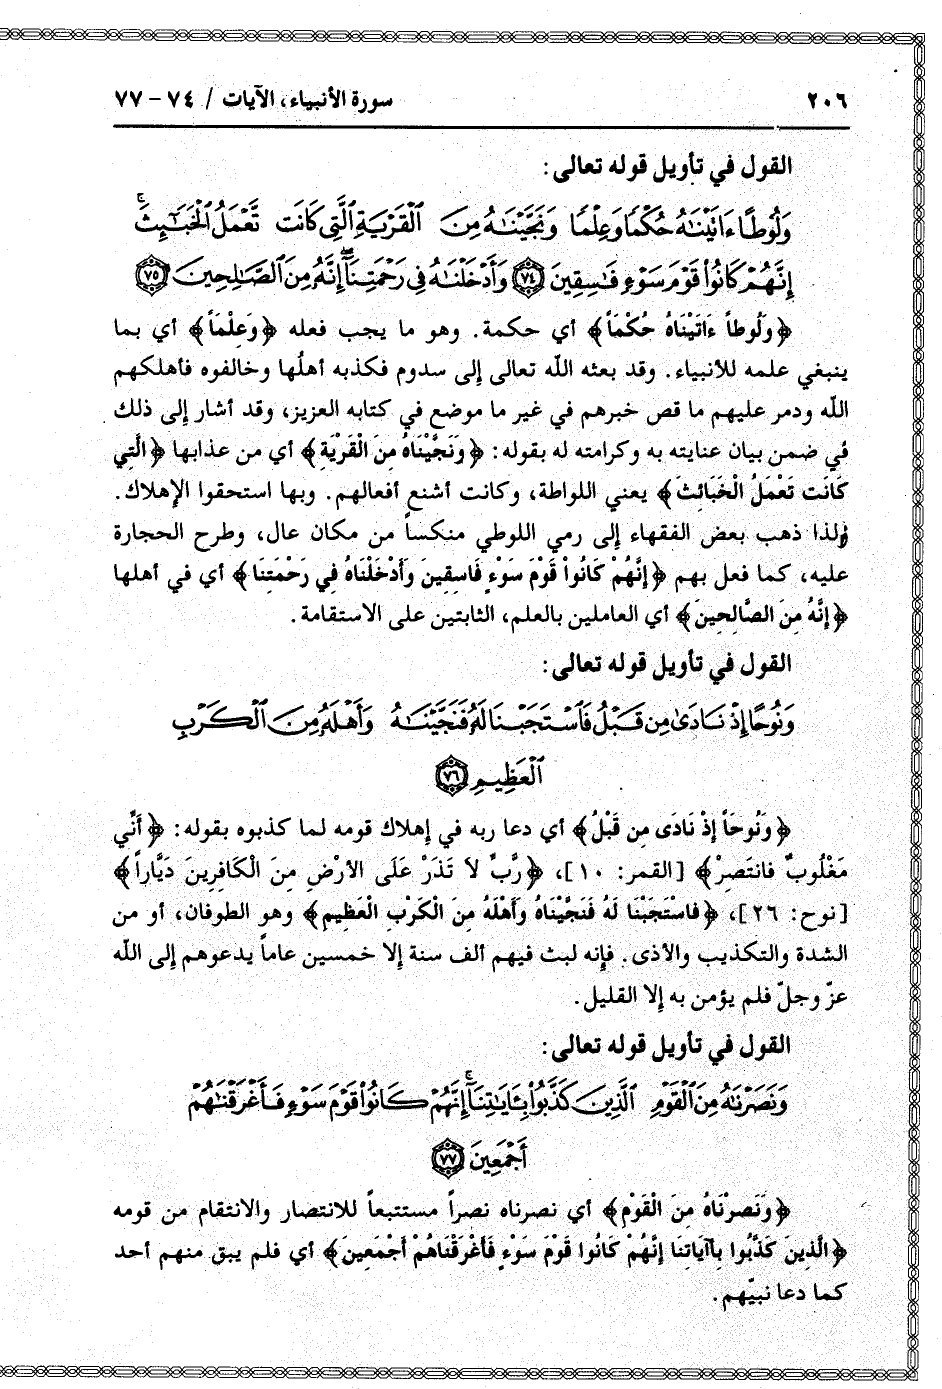 ٢٠٦ سورة الأنبياء، الآيات / ٧٤ - ٧٧
القول في تأويل قوله تعالى:
وَلُوطًا ءَاتَيْنَٰهُ حُكْمًا وَعِلْمًا وَنَجَّيْنَٰهُ مِنَ ٱلْقَرْيَةِ ٱلَّتِى كَانَت تَّعْمَلُ ٱلْخَبَٰٓئِثَ ۚ
إِنَّهُمْ كَانُوا۟ قَوْمَ سَوْءٍ فَٰسِقِينَ ﴿٧٤﴾ وَأَدْخَلْنَٰهُ فِى رَحْمَتِنَآ ۖ إِنَّهُۥ مِنَ ٱلصَّٰلِحِينَ ﴿٧٥﴾
﴿وَلُوطاً ءَاتَيْنَاهُ حُكْمَاً﴾ أي حكمة. وهو ما يجب فعله ﴿وَعِلْمَاً﴾ أي بما
ينبغي علمه للأنبياء. وقد بعثه الله تعالى إلى سدوم فكذبه أهلُها وخالفوه فأهلكهم
الله ودمر عليهم ما قص خبرهم في غير ما موضع في كتابه العزيز، وقد أشار إلى ذلك
في ضمن بيان عنايته به وكرامته له بقوله: ﴿وَنَجَّيْنَاهُ مِنَ الْقَرْيَةِ﴾ أي من عذابها ﴿الَّتِي
كَانَت تَعْمَلُ الْخَبَائِثَ﴾ يعني اللواطة، وكانت أشنع أفعالهم. وبها استحقوا الإهلاك.
ولذا ذهب بعض الفقهاء إلى رمي اللوطي منكساً من مكان عال، وطرح الحجارة
عليه، كما فعل بهم ﴿إِنَّهُمْ كَانُواْ قَوْمَ سَوْءٍ فَاسِقِينَ وَأَدْخَلْنَاهُ فِي رَحْمَتِنَا﴾ أي في أهلها
﴿إِنَّهُ مِنَ الصَّالِحِينَ﴾ أي العاملين بالعلم، الثابتين على الاستقامة.
القول في تأويل قوله تعالى:
وَنُوحًا إِذْ نَادَىٰ مِن قَبْلُ فَٱسْتَجَبْنَا لَهُۥ فَنَجَّيْنَٰهُ وَأَهْلَهُۥ مِنَ ٱلْكَرْبِ
ٱلْعَظِيمِ ﴿٧٦﴾
﴿وَنُوحَاً إِذْ نَادَى مِن قَبْلُ﴾ أي دعا ربه في إهلاك قومه لما كذبوه بقوله: ﴿أَنِّي
مَغْلُوبٌ فانتَصِرْ﴾ [القمر: ١٠]، ﴿رَّبِّ لاَ تَذَرْ عَلَى الأَرْضِ مِنَ الْكَافِرِينَ دَيَّاراً﴾
[نوح: ٢٦]، ﴿فَاسْتَجَبْنَا لَهُ فَنَجَّيْنَاهُ وَأَهْلَهُ مِنَ الْكَرْبِ الْعَظِيمِ﴾ وهو الطوفان، أو من
الشدة والتكذيب والأذى. فإنه لبث فيهم ألف سنة إلا خمسين عاماً يدعوهم إلى الله
عزّ وجلّ فلم يؤمن به إلا القليل.
القول في تأويل قوله تعالى:
وَنَصَرْنَٰهُ مِنَ ٱلْقَوْمِ ٱلَّذِينَ كَذَّبُوا۟ بِـَٔايَٰتِنَآ ۚ إِنَّهُمْ كَانُوا۟ قَوْمَ سَوْءٍ فَأَغْرَقْنَٰهُمْ
أَجْمَعِينَ ﴿٧٧﴾
﴿وَنَصرْنَاهُ مِنَ الْقَوْم﴾ أي نصرناه نصراً مستتبعاً للانتصار والانتقام من قومه
﴿الَّذِينَ كَذَّبُوا بِآايَاتِنَا إِنَّهُمْ كَانُوا قَوْمَ سَوْءٍ فَأَغْرَقْنَاهُمْ أَجْمَعِينَ﴾ أي فلم يبق منهم أحد
كما دعا نبيّهم.